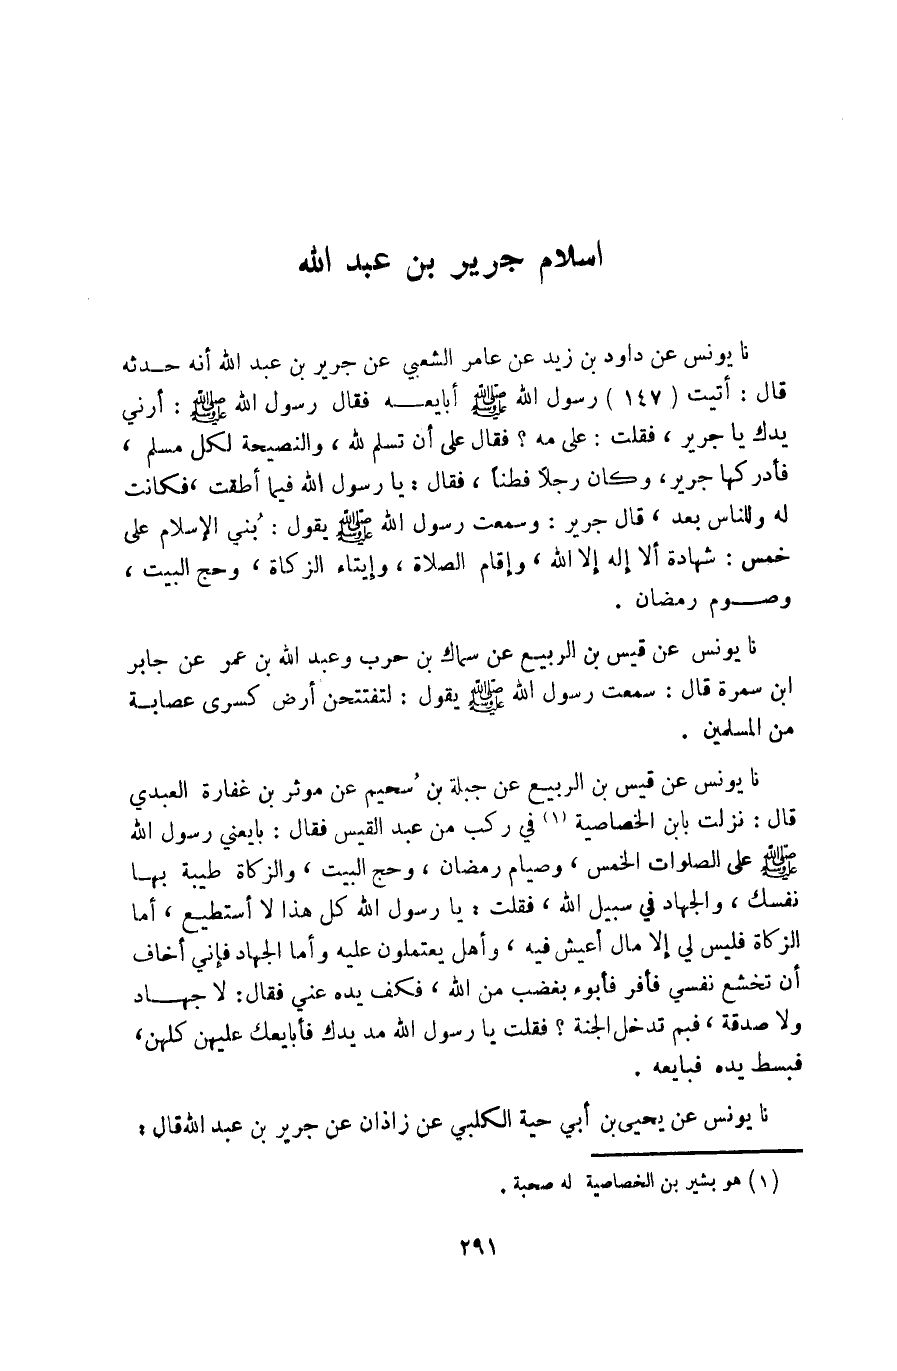 اسلام جرير بن عبد الله
نا يونس عن داود بن زيد عن عامر الشعبي عن جرير بن عبد الله أنه حـدثه
قال : أتيت ( ١٤٧ ) رسول الله ﷺ أبايعـــه فقال رسول الله ﷺ : أرني
يدك يا جرير ، فقلت : على مه ؟ فقال على أن تسلم لله ، والنصيحة لكل مسلم ،
فأدركها جرير ، وكان رجلاً فطناً ، فقال : يا رسول الله فيما أطقت ،فكانت
له وللناس بعد ، قال جرير : وسمعت رسول الله ﷺ يقول : بُني الإسلام على
خمس : شهادة ألا إله إلا الله ، وإقام الصلاة ، وإيتاء الزكاة ، وحج البيت ،
وصــوم رمضان .
نا يونس عن قيس بن الربيع عن سماك بن حرب وعبد الله بن عمر عن جابر
ابن سمرة قال : سمعت رسول الله ﷺ يقول : لتفتتحن أرض كسرى عصابـة
من المسلمين .
نا يونس عن قيس بن الربيع عن جبلة بن سُحيم عن موثر بن غفارة العبدي
قال : نزلت بابن الخصاصية (١) في ركب من عبد القيس فقال : بايعني رسول الله
ﷺ على الصلوات الخمس ، وصيام رمضان ، وحج البيت ، والزكاة طيبة بهـا
نفسك ، والجهاد في سبيل الله ، فقلت : يا رسول الله كل هذا لا أستطيع ، أما
الزكاة فليس لي إلا مال أعيش فيه ، وأهل يعتملون عليه وأما الجهاد فإني أخاف
أن تخشع نفسي فأفر فأبوء بغضب من الله ، فكف يده عني فقال: لا جهـــاد
ولا صدقة ، فبم تدخل الجنة ؟ فقلت يا رسول الله مد يدك فأبايعك عليهن كلهن،
فبسط يده فبايعه .
نا يونس عن يحيى بن أبي حية الكلبي عن زاذان عن جرير بن عبد الله قال :
(١) هو بشير بن الخصاصية له صحبة .
٢٩١